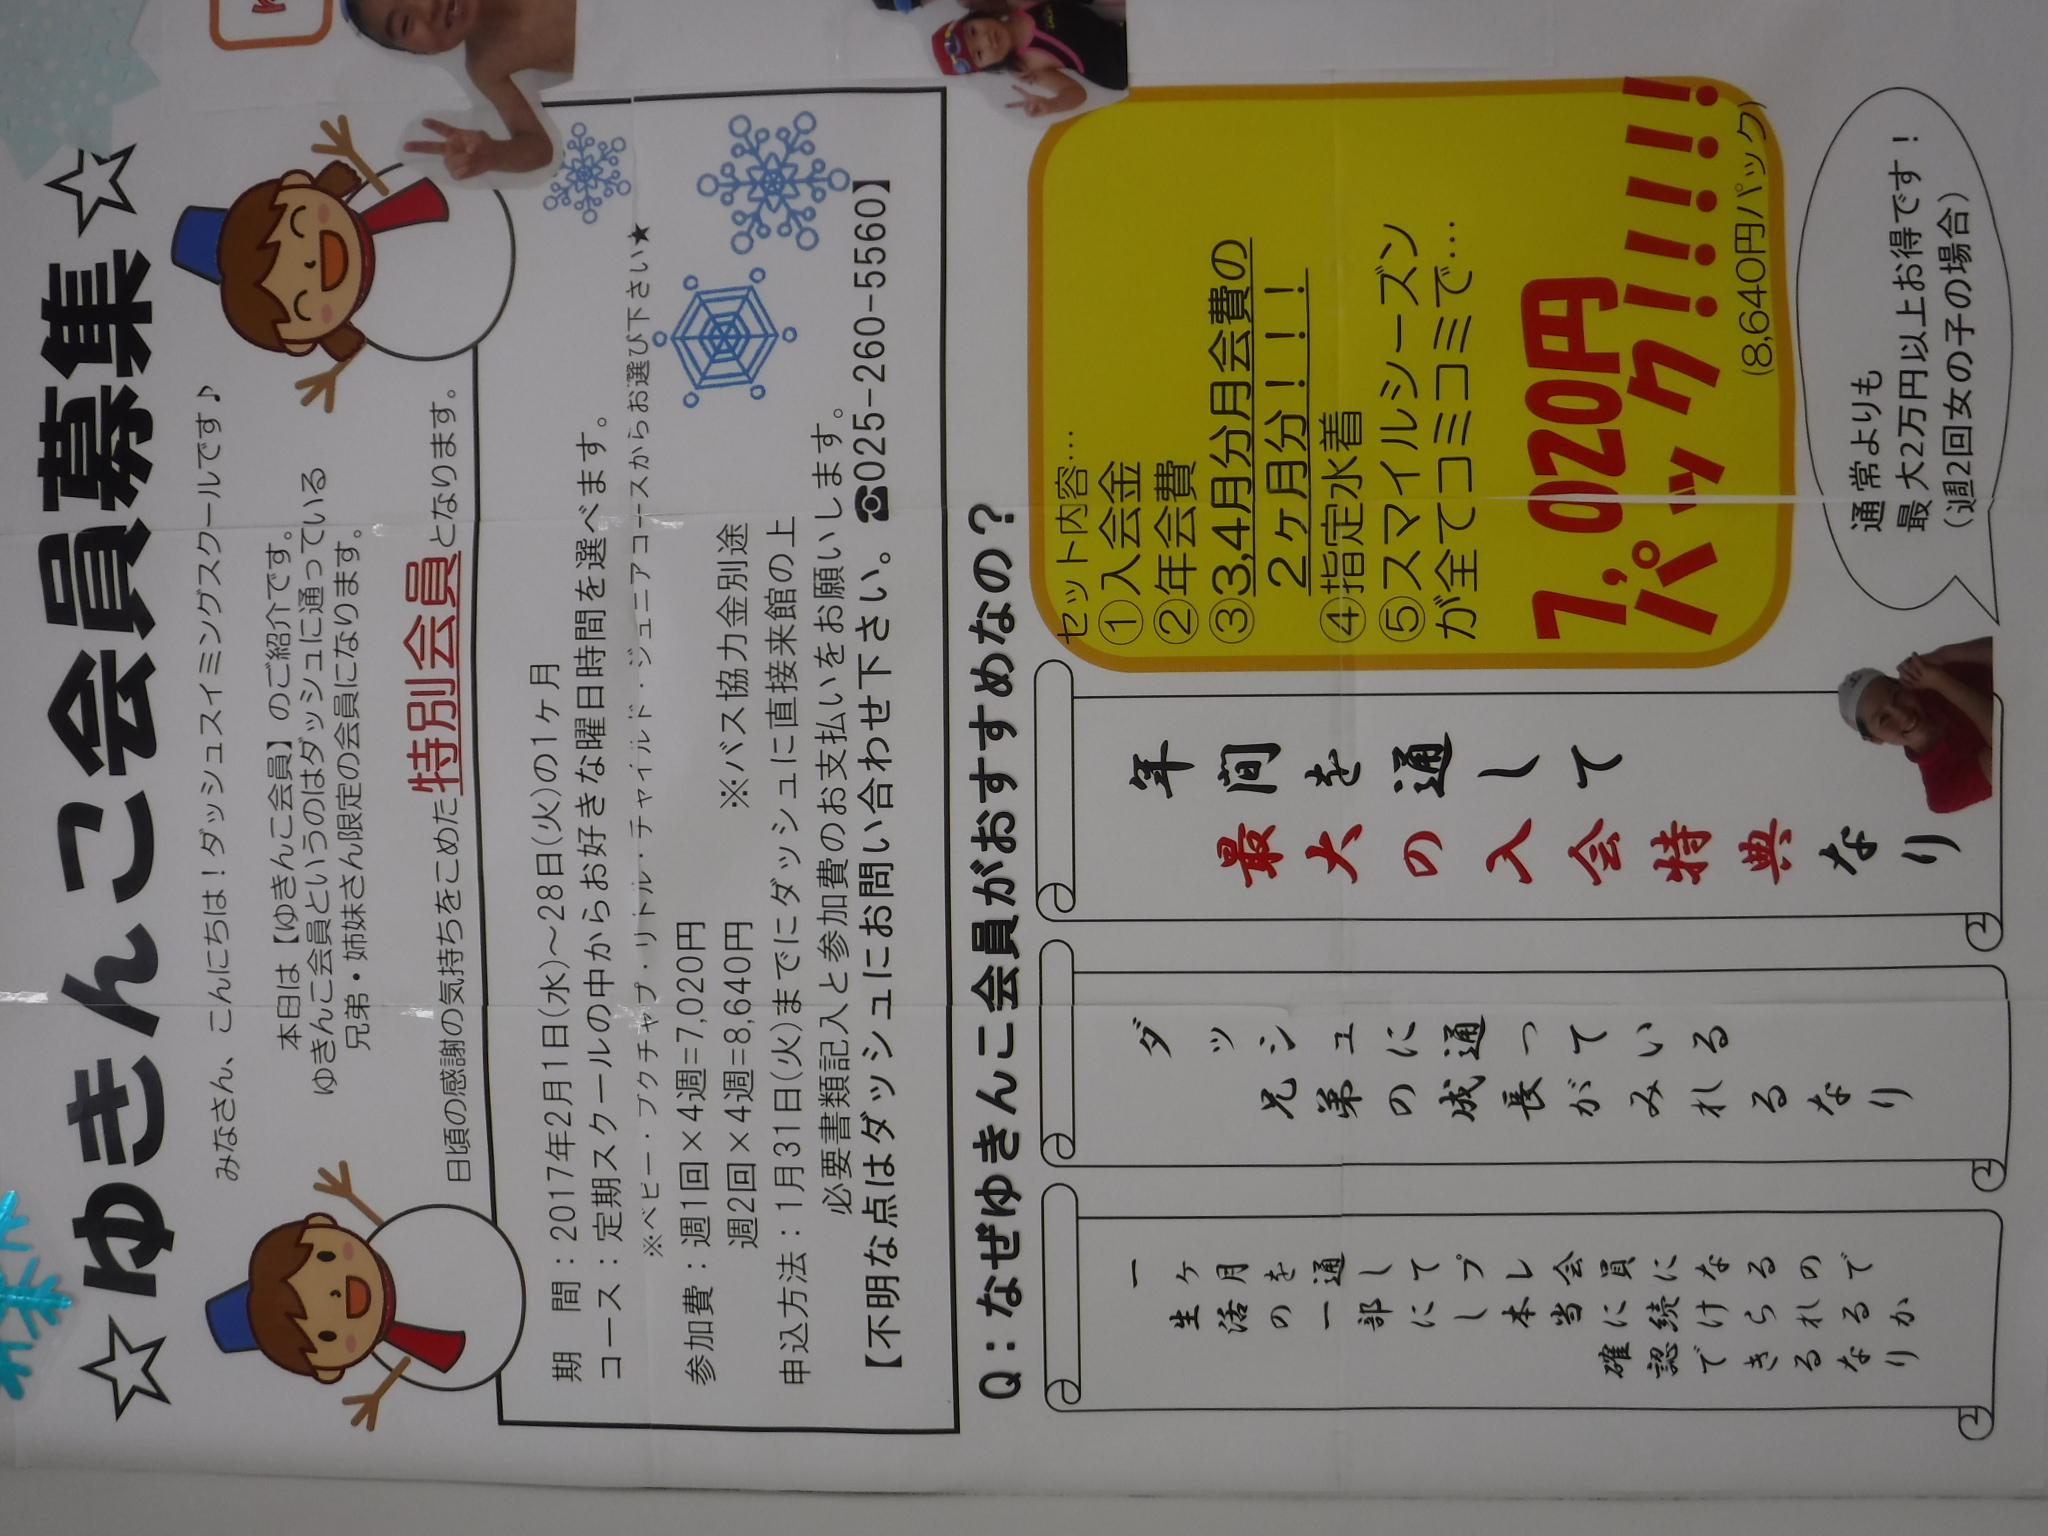 ☆ゆきんこ会員募集☆
みなさん、こんにちは！ダッシュスイミングスクールです♪
本日は【ゆきんこ会員】のご紹介です。
ゆきんこ会員というのはダッシュに通っている
兄弟・姉妹さん限定の会員になります。
日頃の感謝の気持ちをこめた特別会員となります。
期　間：2017年2月1日(水)～28日(火)の1ヶ月
コース：定期スクールの中からお好きな曜日時間を選べます。
※ベビー・プクチャプ・リトル・チャイルド・ジュニアコースからお選び下さい★
参加費：週1回×4週=7,020円
週2回×4週=8,640円　※バス協力金別途
申込方法：1月31日(火)までにダッシュに直接来館の上
必要書類記入と参加費のお支払いをお願いします。
【不明な点はダッシュにお問い合わせ下さい。☎025-260-5560】
Q：なぜゆきんこ会員がおすすめなの？
一ヶ月を通してプレ会員になるので
生活の一部にし本当に続けられるか
確認できるなり
ダッシュに通っている
兄弟の成長がみれるなり
年間を通して
最大の入会特典なり
セット内容…
①入会金
②年会費
③3,4月分月会費の
２ヶ月分！！！！
④指定水着
⑤スマイルシーズン
が全てコミコミで…
7,020円
パック！！！！！
(8,640円パック)
通常よりも
最大2万円以上お得です！
(週2回女の子の場合)